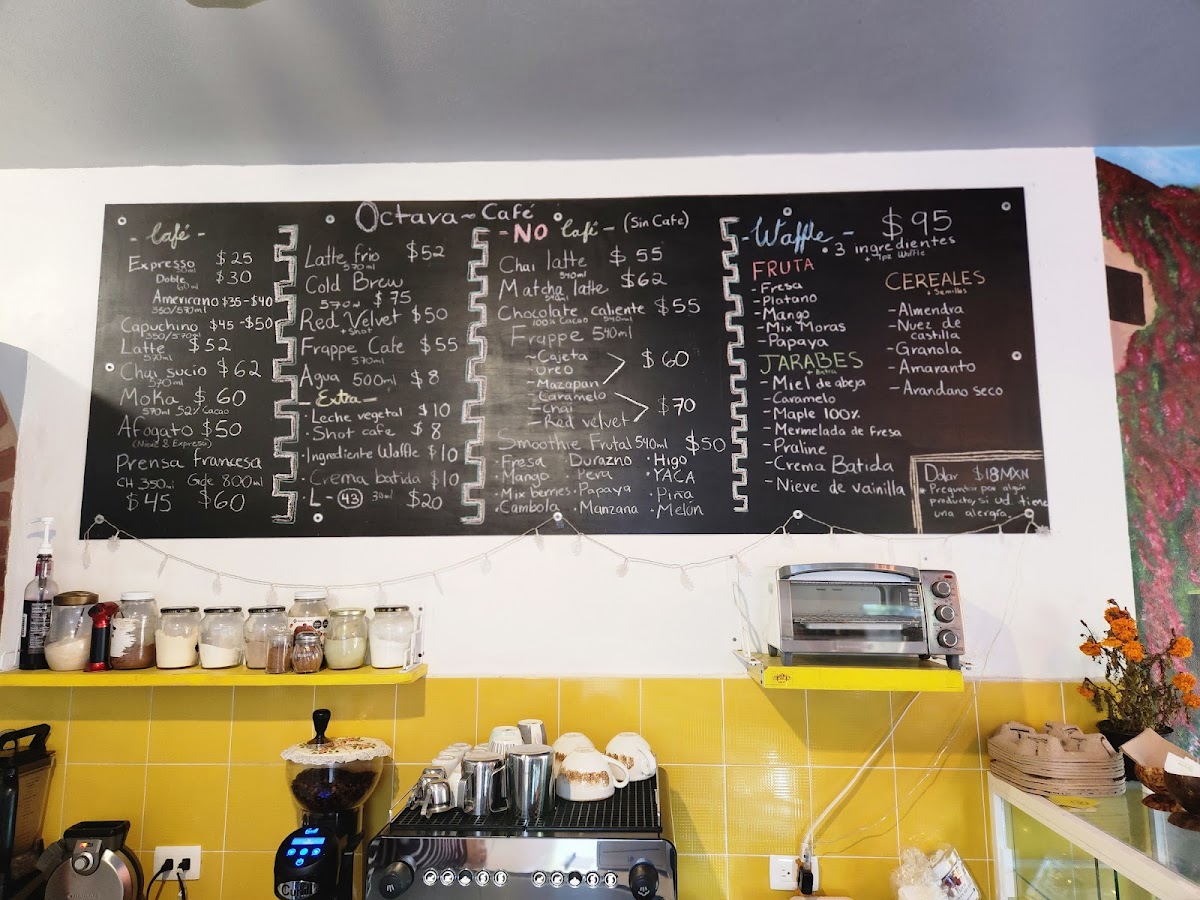 Octava~Café
- Café -
Expresso $25
Doble $30
Americano $35-$40
350/570ml
Capuchino $45-$50
350/570ml
Latte $52
570ml
Chai sucio $62
570ml
Moka $60
570ml 52% Cacao
Afogato $50
(Nieve & Expreso)
Prensa francesa
CH 350ml Gde 800ml
$45 $60
Latte frio $52
570ml
Cold Brew
570ml $75
Red Velvet $50
+ Shot
Frappe Cafe $55
570ml
Agua 500ml $8
- Extra -
· Leche vegetal $10
· Shot cafe $8
· Ingrediente Waffle $10
· Crema batida $10
L-43 30ml $20
- NO Café - (Sin Cafe)
Chai latte $55
540ml
Matcha latte $62
540ml
Chocolate caliente $55
100% Cacao 540ml
Frappe 540ml
- Cajeta
- Oreo
- Mazapan
$60
- Caramelo
- Chai
- Red velvet
$70
Smoothie Frutal 540ml $50
· Fresa · Durazno · Higo
· Mango · Pera · YACA
· Mix berries · Papaya · Piña
· Cambola · Manzana · Melón
- Waffle - $95
· 3 ingredientes
+ 1pz Waffle
FRUTA
- Fresa
- Platano
- Mango
- Mix Moras
- Papaya
JARABES
- Miel de abeja
- Caramelo
- Maple 100%
- Mermelada de Fresa
- Praline
- Crema Batida
- Nieve de vainilla
CEREALES
+ Semillas
- Almendra
- Nuez de
castilla
- Granola
- Amaranto
- Arandano seco
Dolar $18 MXN
* Preguntar por algún
producto, si ud tiene
una alergia.